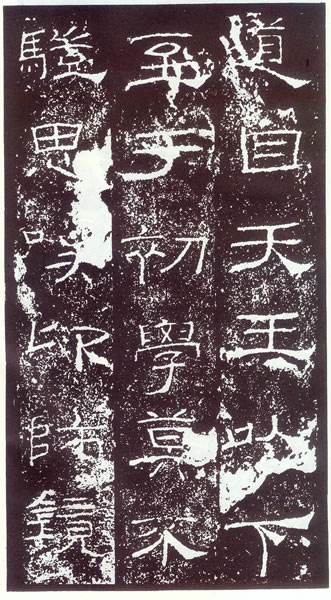 道自天王以下
至于初學莫不
䮗思嘆卬師鏡